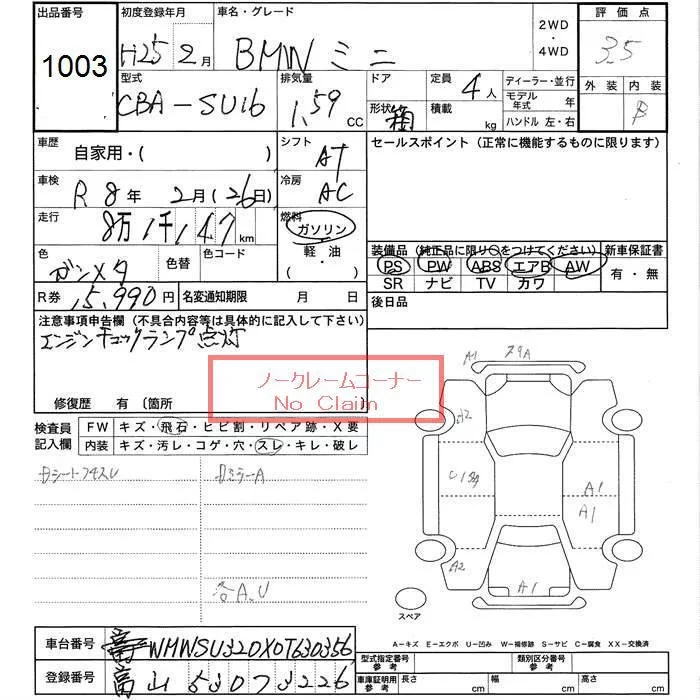 出品番号 1003
初度登録年月 H25 2月
車名・グレード BMW ミニ
2WD・4WD
評価点 3.5
型式 CBA-SU16
排気量 1.59 CC
ドア 形状 箱
定員 4人
積載 kg
ディーラー・並行
モデル年式 年
ハンドル 左・右
外装 内装 B
車歴 自家用・( )
シフト AT
セールスポイント (正常に機能するものに限ります)
車検 R 8年 2月(26日)
冷房 AC
走行 8万1千147km
燃料 ガソリン・軽・油・( )
色 ガンメタ 色替 色コード
装備品 (純正品に限り○をつけてください) 新車保証書
PS PW ABS エアB AW 有・無
SR ナビ TV カワ
R券 15,990円 名変通知期限 月 日
後日品
注意事項申告欄 (不具合内容等は具体的に記入して下さい)
エンジンチェックランプ点灯
ノークレームコーナー
No Claim
修復歴 有 〔箇所
検査員記入欄
FW キズ・飛石・ヒビ割・リペア跡・X要
内装 キズ・汚レ・コゲ・穴・スレ・キレ・破レ
各A.U
A1
A2
A1
A1
A1
スペア
A-キズ E-エクボ U-凹み W-補修跡 S-サビ C-腐食 XX-交換済
車台番号 WMWSU320X0T630356
登録番号 富山
型式指定番号 参考 類別区分番号 参考
車庫証明用 参考 長さ cm 幅 cm 高さ cm